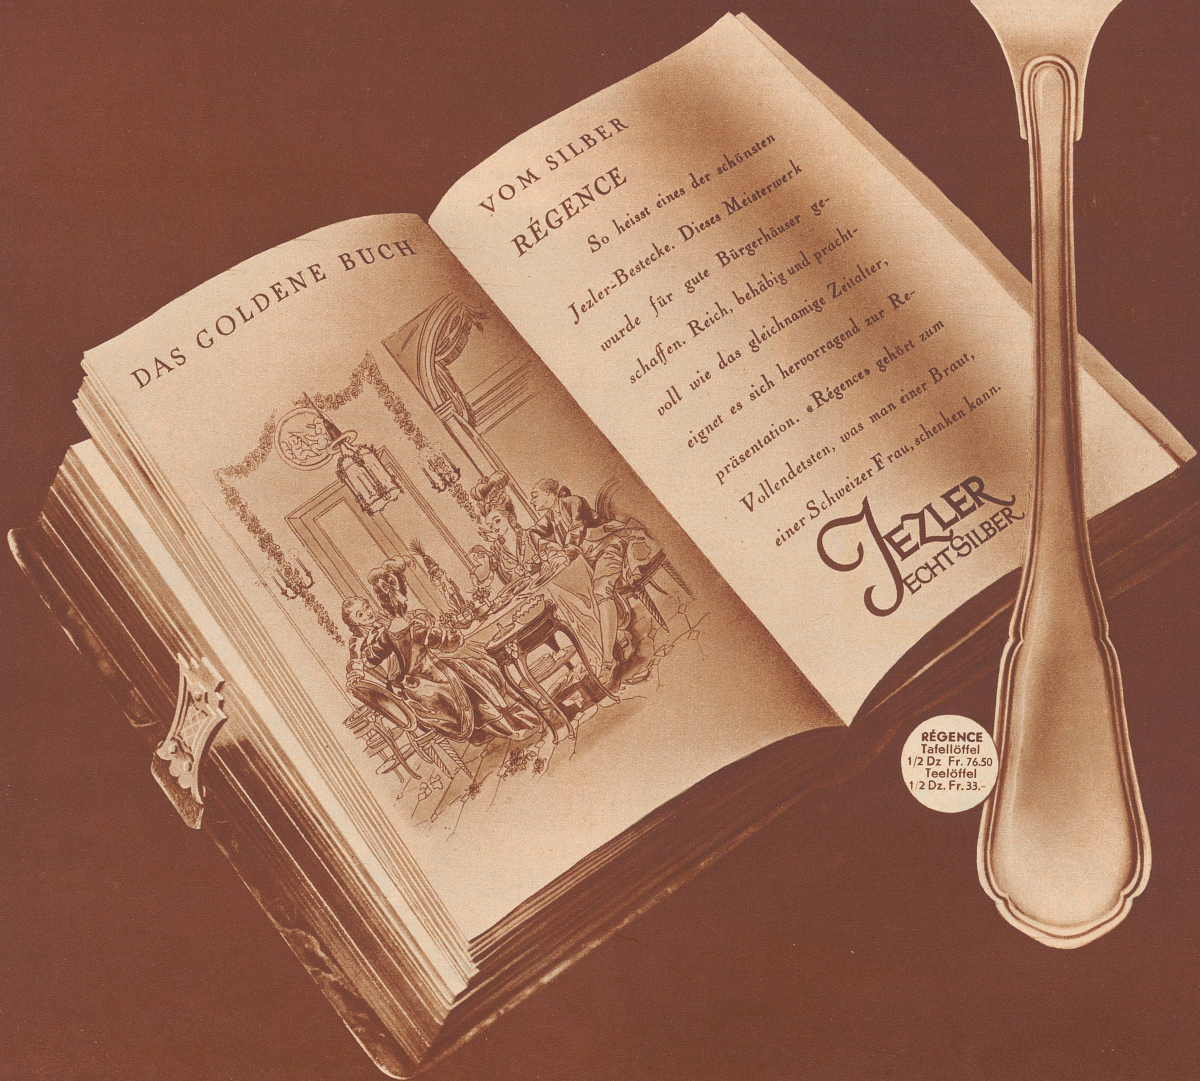 DAS GOLDENE BUCH
VOM SILBER
RÉGENCE
So heisst eines der schönsten
Jezler-Bestecke. Dieses Meisterwerk
wurde für gute Bürgerhäuser ge-
schaffen. Reich, behäbig und pracht-
voll wie das gleichnamige Zeitalter,
eignet es sich hervorragend zur Re-
präsentation. «Régence» gehört zum
Vollendetsten, was man einer Braut,
einer Schweizer Frau, schenken kann.
JEZLER
ECHTSILBER
RÉGENCE
Tafellöffel
1/2 Dz Fr. 76.50
Teelöffel
1/2 Dz. Fr. 33.-